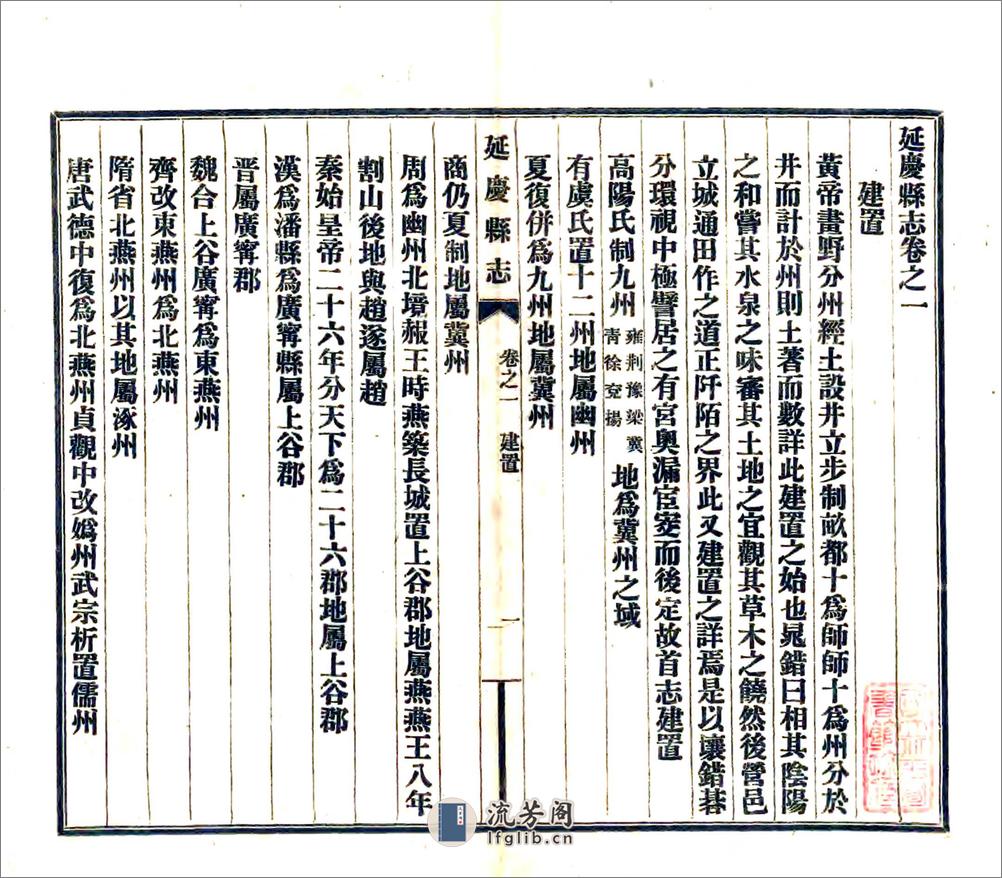 延慶縣志卷之一
建置
黃帝畫野分州經土設井立步制畝都十爲師師十爲州分於
井而計於州則土著而數詳此建置之始也晁錯曰相其陰陽
之和嘗其水泉之味審其土地之宜觀其草木之饒然後營邑
立城通田作之道正阡陌之界此又建置之詳焉是以壤錯碁
分環視中極譬居之有宮奧漏宧窔而後定故首志建置
高陽氏制九州雍荆豫梁冀青徐兗揚地爲冀州之域
有虞氏置十二州地屬幽州
夏復併爲九州地屬冀州
延慶縣志
卷之一 建置
一
商仍夏制地屬冀州
周爲幽州北境赧王時燕築長城置上谷郡地屬燕燕王八年
割山後地與趙遂屬趙
秦始皇帝二十六年分天下爲二十六郡地屬上谷郡
漢爲潘縣爲廣甯縣屬上谷郡
晋屬廣甯郡
魏合上谷廣甯爲東燕州
齊改東燕州爲北燕州
隋省北燕州以其地屬涿州
唐武德中復爲北燕州貞觀中改嬀州武宗析置儒州
流芳阁
lfglib.cn